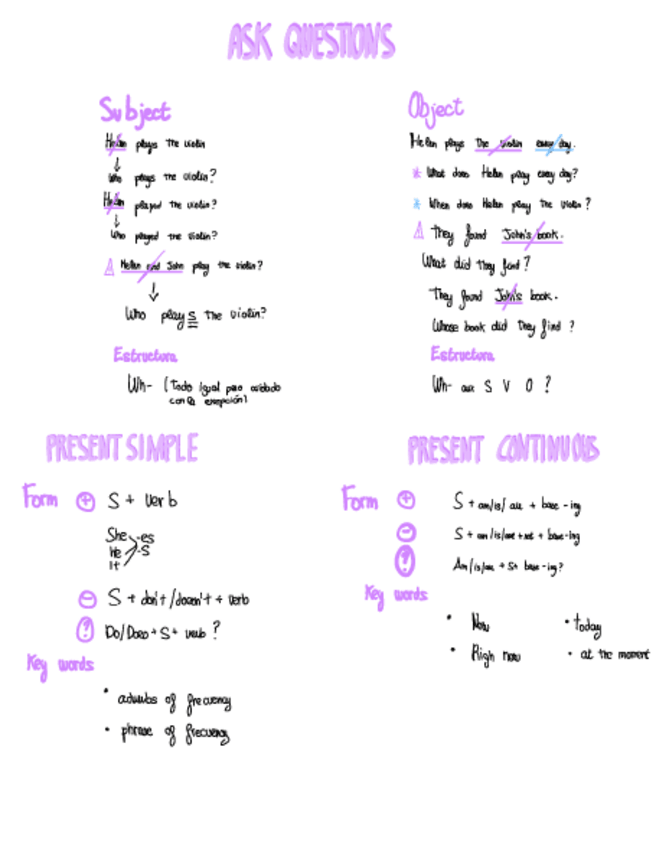 ASK QUESTIONS
Subject
Helen plays the violin
↓
Who plays the violin?
Helen played the violin?
↓
Who played the violin?
⚠ Helen and John play the violin?
↓
Who plays the violin?
Estructura
Wh- (Todo igual pero cuidado
con la excepción)
Object
Helen plays the violin every day.
* What does Helen play every day?
* When does Helen play the violin?
⚠ They found John's book.
What did they find?
They found John's book.
Whose book did they find?
Estructura
Wh- aux S V O ?
PRESENT SIMPLE
Form + S + verb
She -es
He -s
It
- S + don't/doesn't + verb
? Do/Does + S + verb?
Key words
• adverbs of frecuency
• phrase of frecuency
PRESENT CONTINUOUS
Form + S + am/is/are + base -ing
- S + am/is/are + not + base-ing
? Am/is/are + S + base-ing?
Key words
• Now
• Righ now
• today
• at the moment